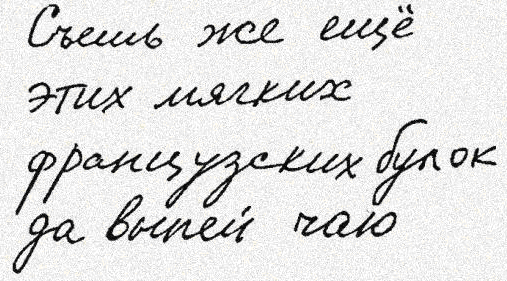 Съешь же ещё
этих мягких
французских булок
да выпей чаю